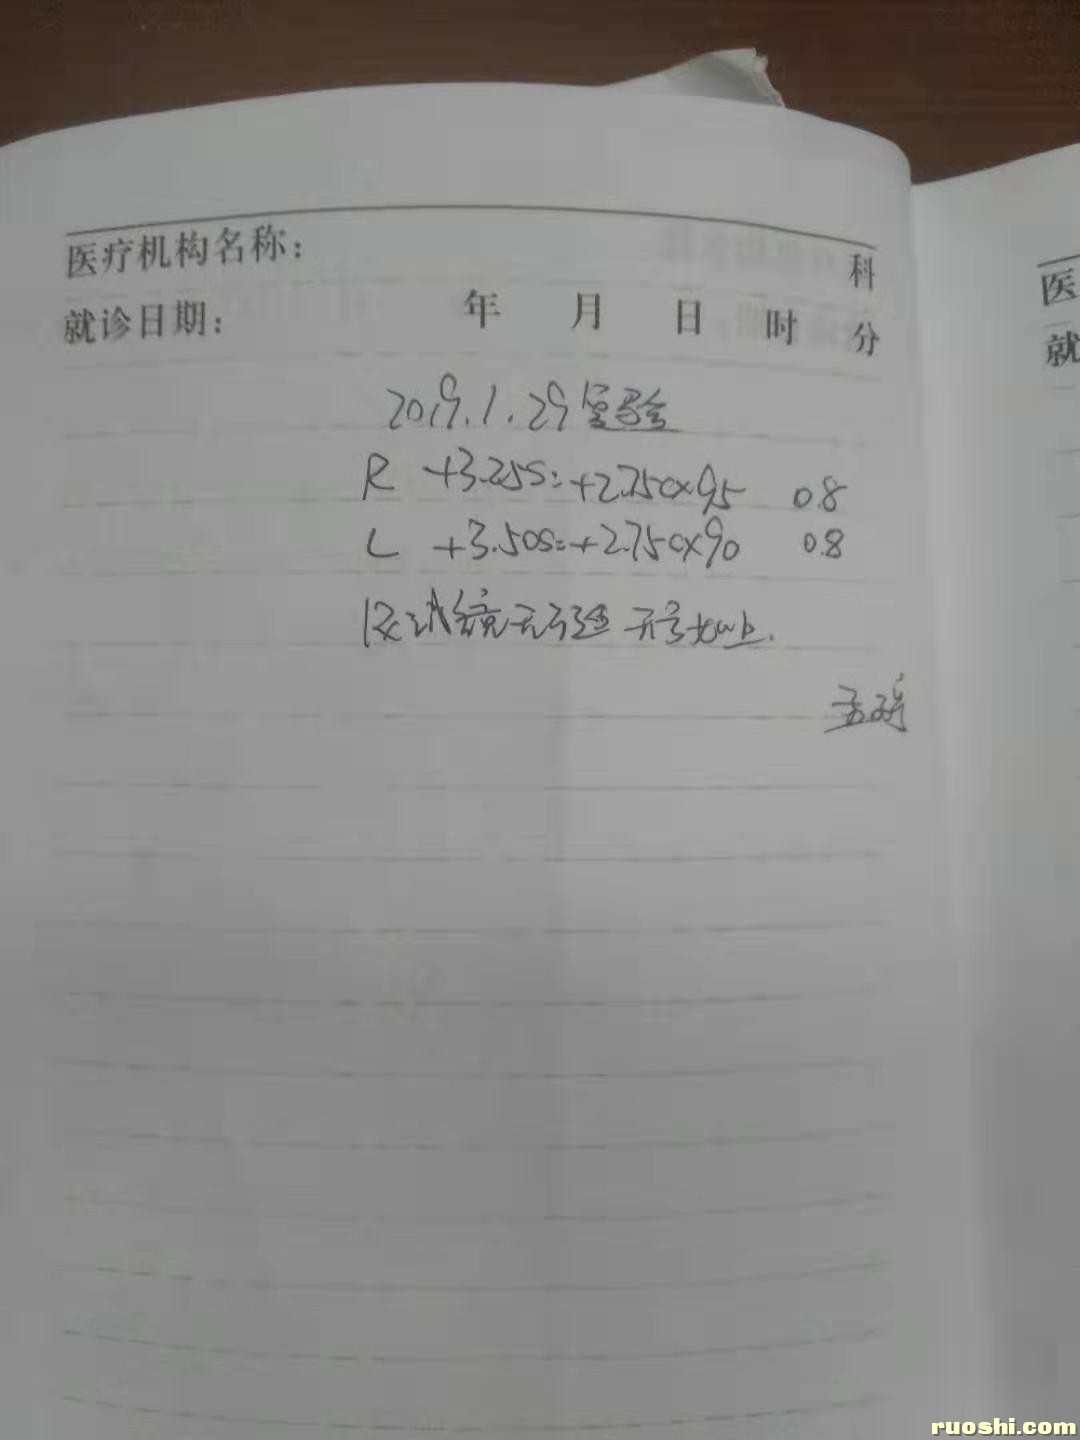 医疗机构名称： 科
就诊日期： 年 月 日 时 分
2019.1.29 复验
R +3.25S=+2.75C×95 0.8
L +3.50S=+2.75C×90 0.8
试镜无不适 开京如上.
孟
医
就
ruoshi.com